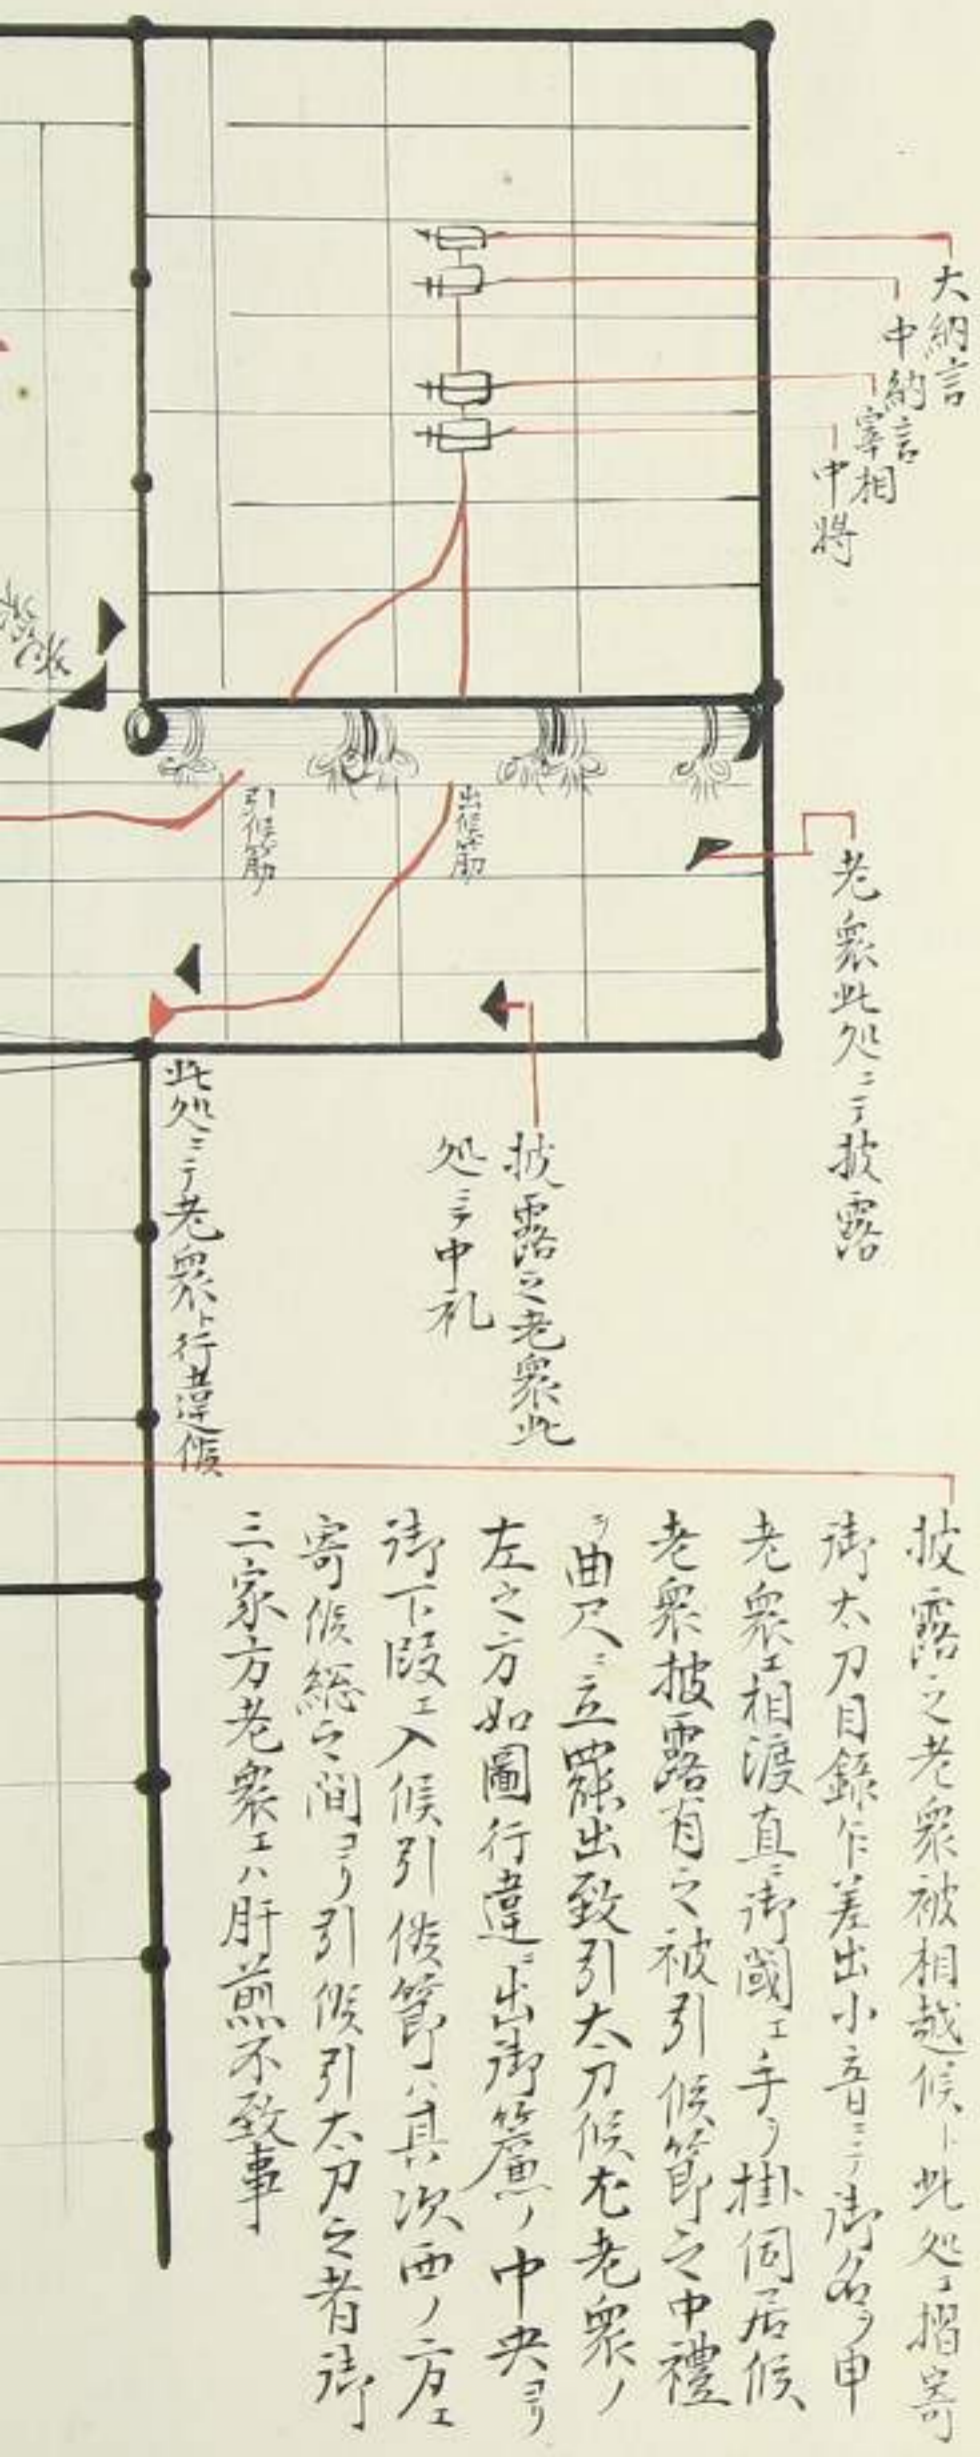 大納言
中納言
宰相
中将
老衆此処ニテ披露
出候節
引候節
披露之老衆此
処ニテ中礼
此処ニテ老衆ト行違候
披露之老衆被相越候ト此処エ摺寄
御太刀目録乍差出小音ニテ御名ヲ申
老衆エ相渡直ニ御閾エ手ヲ掛伺居候
老衆披露有之被引候節之中禮
ヲ曲尺ニ立罷出致引太刀候尤老衆ノ
左之方如圖行違ニ出御簾ノ中央ヨリ
御下段エ入候引候節ハ其次西ノ方エ
寄候総之間ヨリ引候引太刀之者御
三家方老衆エハ肝煎不致事